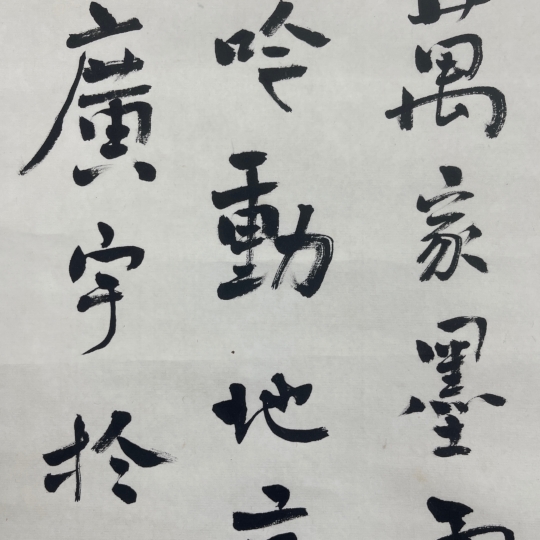 萬家墨
吟動地
廣宇於